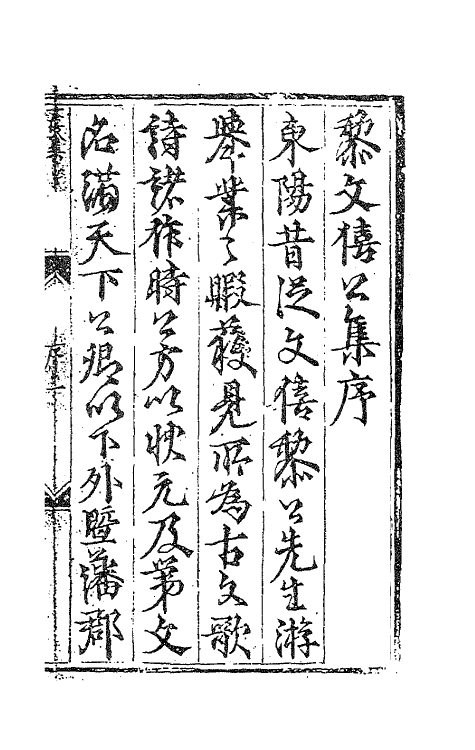 黎文僖公集序
東陽昔從文僖黎公先生游
舉業之暇獲見所為古文歌
詩諸作時公方以狀元及第文
名滿天下公卿以下外暨藩郡
序